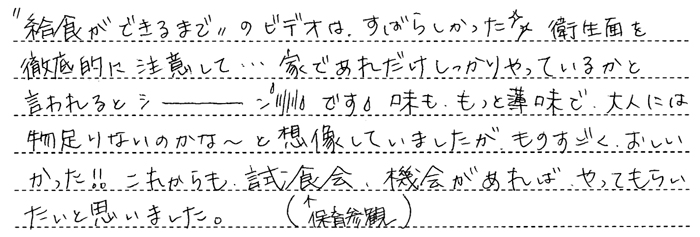 "給食ができるまで"のビデオは、すばらしかった☆☆ 衛生面を
徹底的に注意して… 家であれだけしっかりやっているかと
言われるとシ━━━ンです。味も、もっと薄味で、大人には
物足りないのかな〜と想像していましたがものすごく、おいし
かった!! これからも、試食会、機会があれば、やってもらい
たいと思いました。 (↑保育参観)